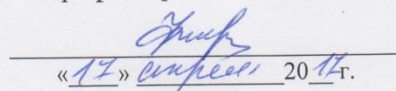 «17» апреля 2017г.